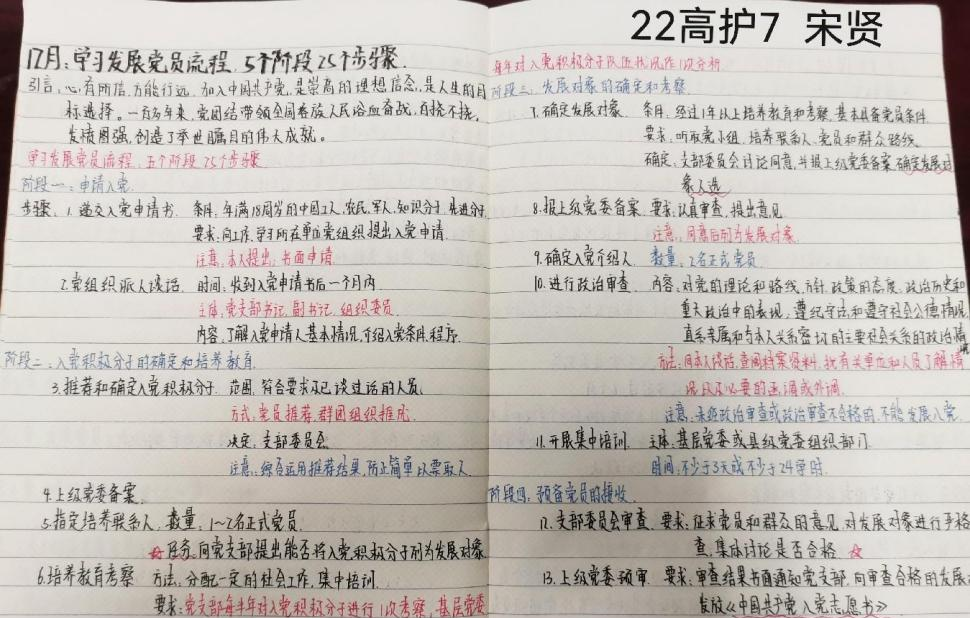 22高护7 宋贤
12月:学习发展党员流程,5个阶段25个步骤.
引言:心有所信,方能行远.加入中国共产党,是崇高的理想信念,是人生的目
标选择。一百多年来,党团结带领全国各族人民浴血奋战,百折不挠,
发愤图强,创造了举世瞩目的伟大成就。
学习发展党员流程,五个阶段25个步骤
阶段一:申请入党.
步骤:1.递交入党申请书. 条件:年满18周岁的中国工人,农民,军人,知识分子,先进分子
要求:向工作,学习所在单位党组织提出入党申请.
注意:本人提出,书面申请.
2.党组织派人谈话. 时间:收到入党申请书后一个月内
主体:党支部书记,副书记,组织委员
内容:了解入党申请人基本情况,介绍入党条件,程序.
阶段二:入党积极分子的确定和培养教育.
3.推荐和确定入党积极分子. 范围:符合要求及已谈过话的人员.
方式:党员推荐,群团组织推优
决定:支部委员会
注意:综合运用推荐结果,防止简单以票取人
4.上级党委备案.
5.指定培养联系人. 数量:1~2名正式党员.
☆任务:向党支部提出能否将入党积极分子列为发展对象
6.培养教育考察 方法:分配一定的社会工作,集中培训.
要求:党支部每半年对入党积极分子进行1次考察,基层党委
每年对入党积极分子队伍状况作1次分析
阶段三:发展对象的确定和考察.
7.确定发展对象. 条件:经过1年以上培养教育和考察,基本具备党员条件.
要求:听取党小组,培养联系人,党员和群众路线.
确定:支部委员会讨论同意,并报上级党委备案,确定发展对
象人选
8.报上级党委备案. 要求:认真审查,提出意见
注意:同意后列为发展对象.
9.确定入党介绍人. 数量:2名正式党员.
10.进行政治审查. 内容:对党的理论和路线,方针,政策的态度,政治历史和
重大政治中的表现,遵纪守法和遵守社会公德情况,
直系亲属和与本人关系密切的主要社会关系的政治情
方法:同本人谈话,查阅档案资料,找有关单位和人员了解情
况以及必要的函调或外调.
注意:未经政治审查或政治审查不合格的,不能发展入党.
11.开展集中培训. 主体:基层党委或县级党委组织部门
时间:不少于3天或不少于24学时.
阶段四:预备党员的接收.
12.支部委员会审查. 要求:征求党员和群众的意见,对发展对象进行严格
查,集体讨论是否合格 ☆
13.上级党委预审. 要求:审查结果书面通知党支部,向审查合格的发展
发放《中国共产党入党志愿书》